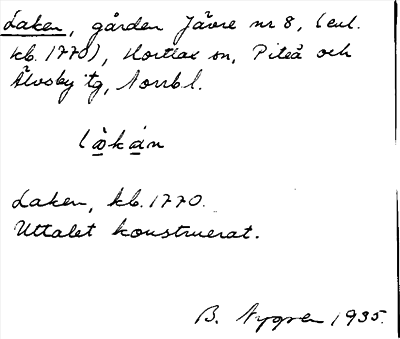 Laken, gården Jävre nr 8, (enl.
kb. 1770), Hortlax sn, Piteå och
Älvsby tg, Norrb l.
låkån
Laken, kb. 1770.
Uttalet konstruerat.
B. Nygren 1935.